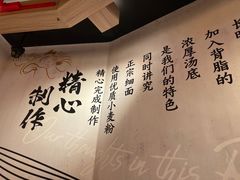 加入背脂的
浓厚汤底
是我们的特色
同时讲究
正宗细面
使用优质小麦粉
精心完成制作
精心
制作